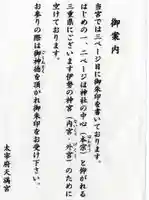 御案内
当宮では二ページ目に御朱印を書いております。
はじめの一、二ページは神社の中心(本宗)と仰がれる
三重県にございます伊勢の神宮(内宮・外宮)のために
空けております。
お参りの際は御神徳を頂かれ御朱印をお受け下さい。
太宰府天満宮